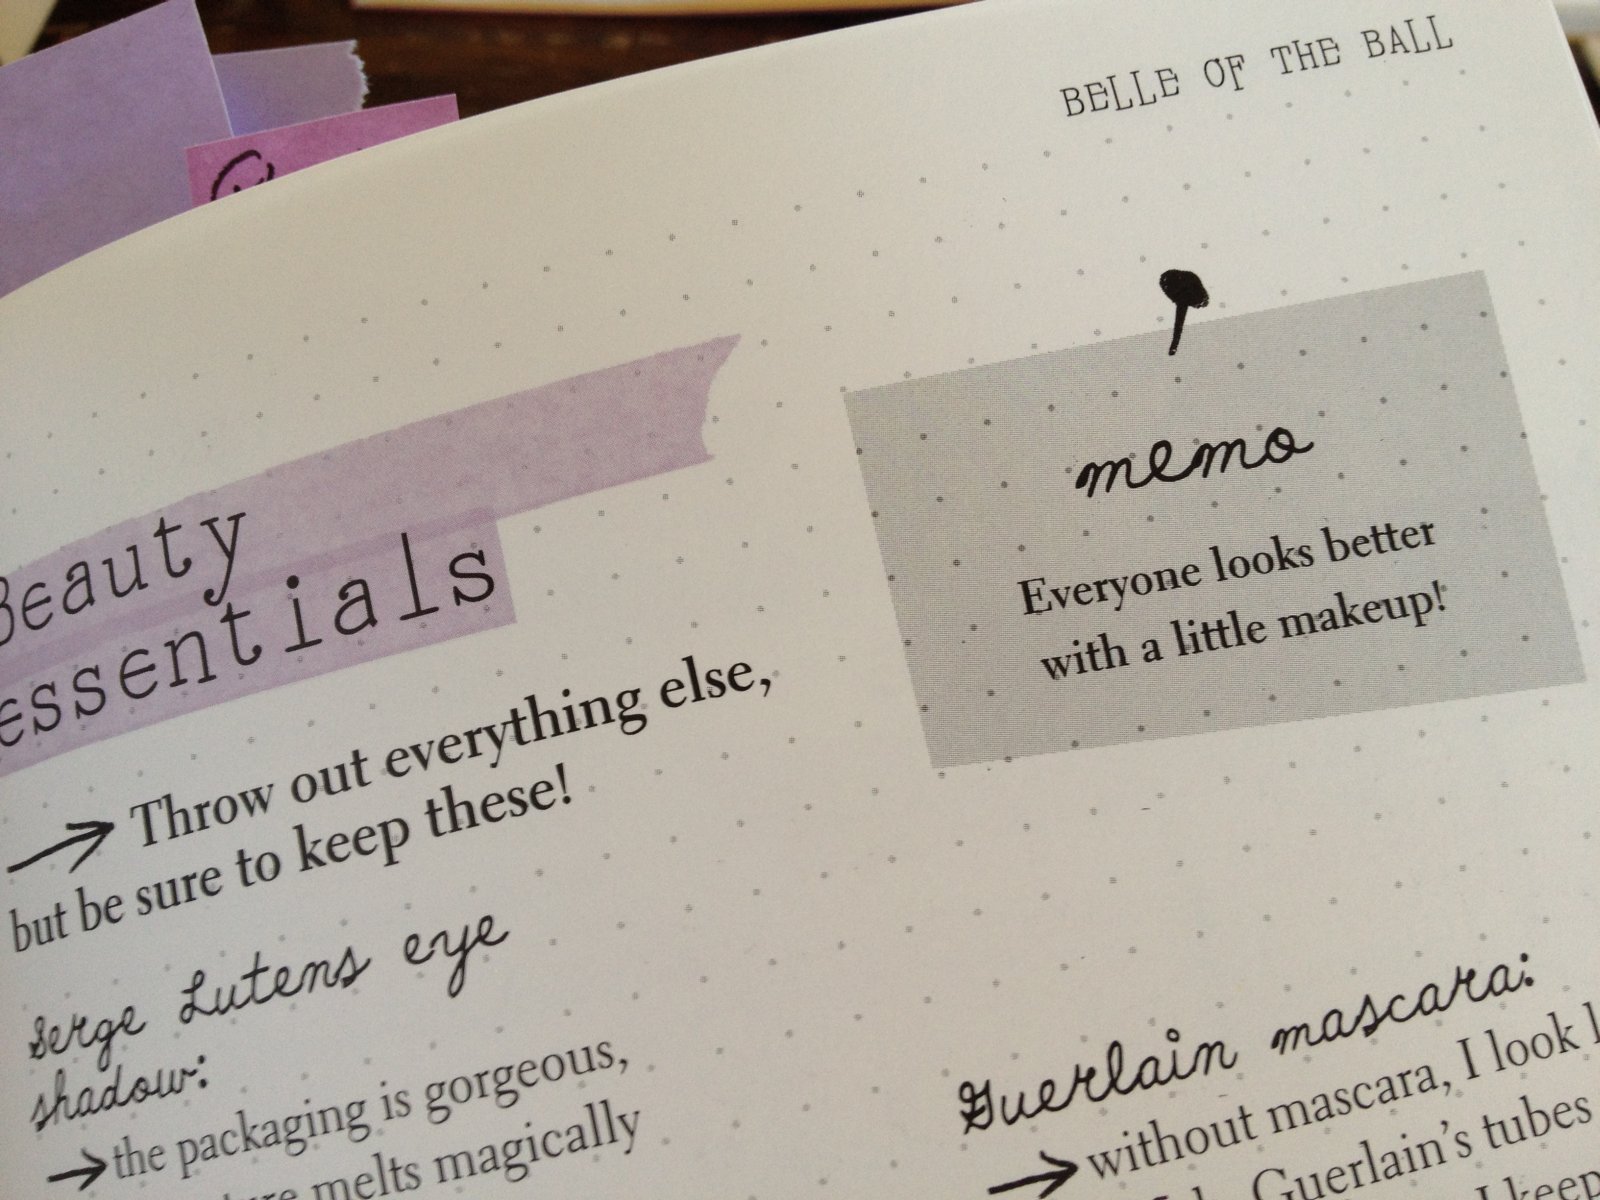 BELLE OF THE BALL
Beauty
essentials
Throw out everything else,
but be sure to keep these!
Serge Lutens eye
shadow:
the packaging is gorgeous,
melts magically
memo
Everyone looks better
with a little makeup!
Guerlain mascara:
without mascara, I look
Guerlain's tubes
I keep